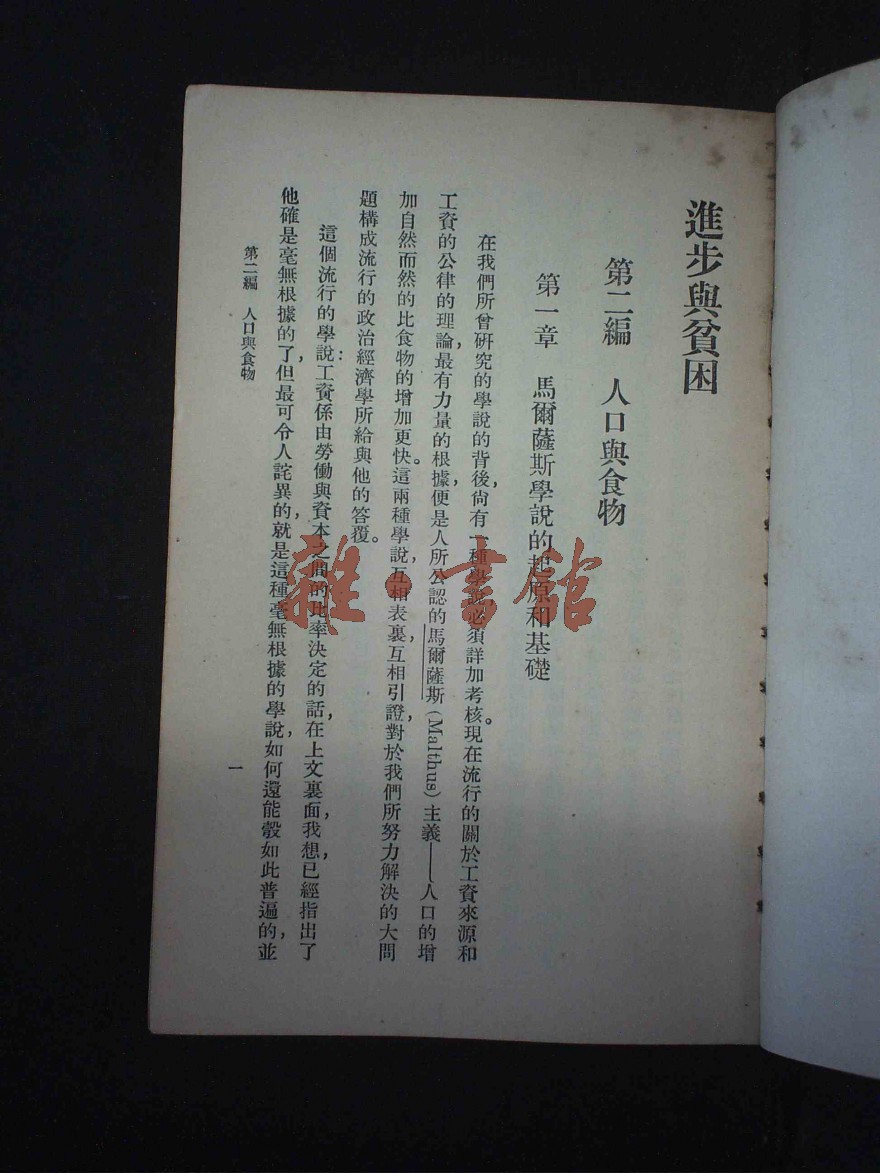 進步與貧困
第二編　人口與食物
第一章　馬爾薩斯學說的起原和基礎
在我們所曾硏究的學說的背後，尙有一種學說必須詳加考核。現在流行的關於工資來源和
工資的公律的理論，最有力量的根據，便是人所公認的馬爾薩斯(Malthus)主義——人口的增
加自然而然的比食物的增加更快。這兩種學說，互相表裏，互相引證，對於我們所努力解決的大問
題構成流行的政治經濟學所給與他的答覆。
這個流行的學說：工資係由勞働與資本之間的比率決定的話，在上文裏面，我想，已經指出了
他確是毫無根據的了，但最可令人詫異的，就是這種毫無根據的學說，如何還能彀如此普遍的，並
第二編　人口與食物
一
雜·書館